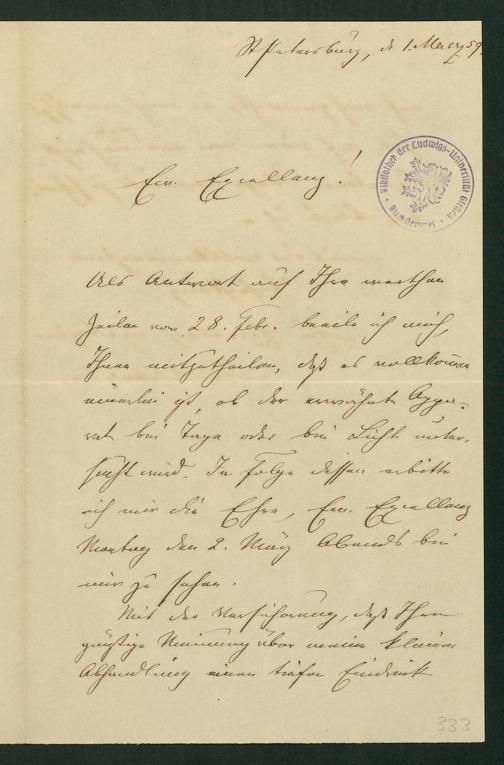 St Petersburg, d. 1. Maerz 59.
Bibliothek der Ludwigs-Universität Giessen
Ew. Excellenz!
Als Antwort auf Ihre werthen
Zeilen vom 28. Febr. beeile ich mich,
Ihnen mitzutheilen, daß es vollkommen
einerlei ist, ob der erwähnte Appa-
rat bei Tage oder bei Licht unter-
sucht wird. In Folge dessen erbitte
ich mir die Ehre, Ew. Excellenz
Montag den 2. März Abends bei
mir zu sehen.
Mit der Versicherung, daß Ihre
günstige Meinung über meine kleine
Abhandlung einen tiefen Eindruck
333